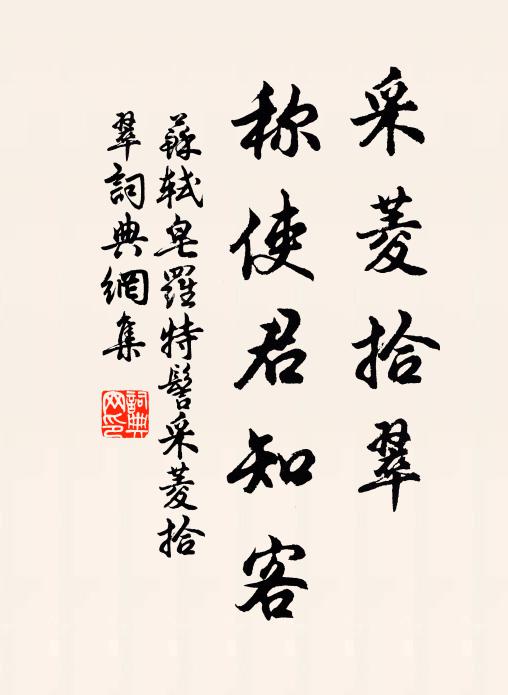 采菱拾翠
称使君知客
蘇軾皂羅特髻采菱拾
翠詞典網集
詞典
网印